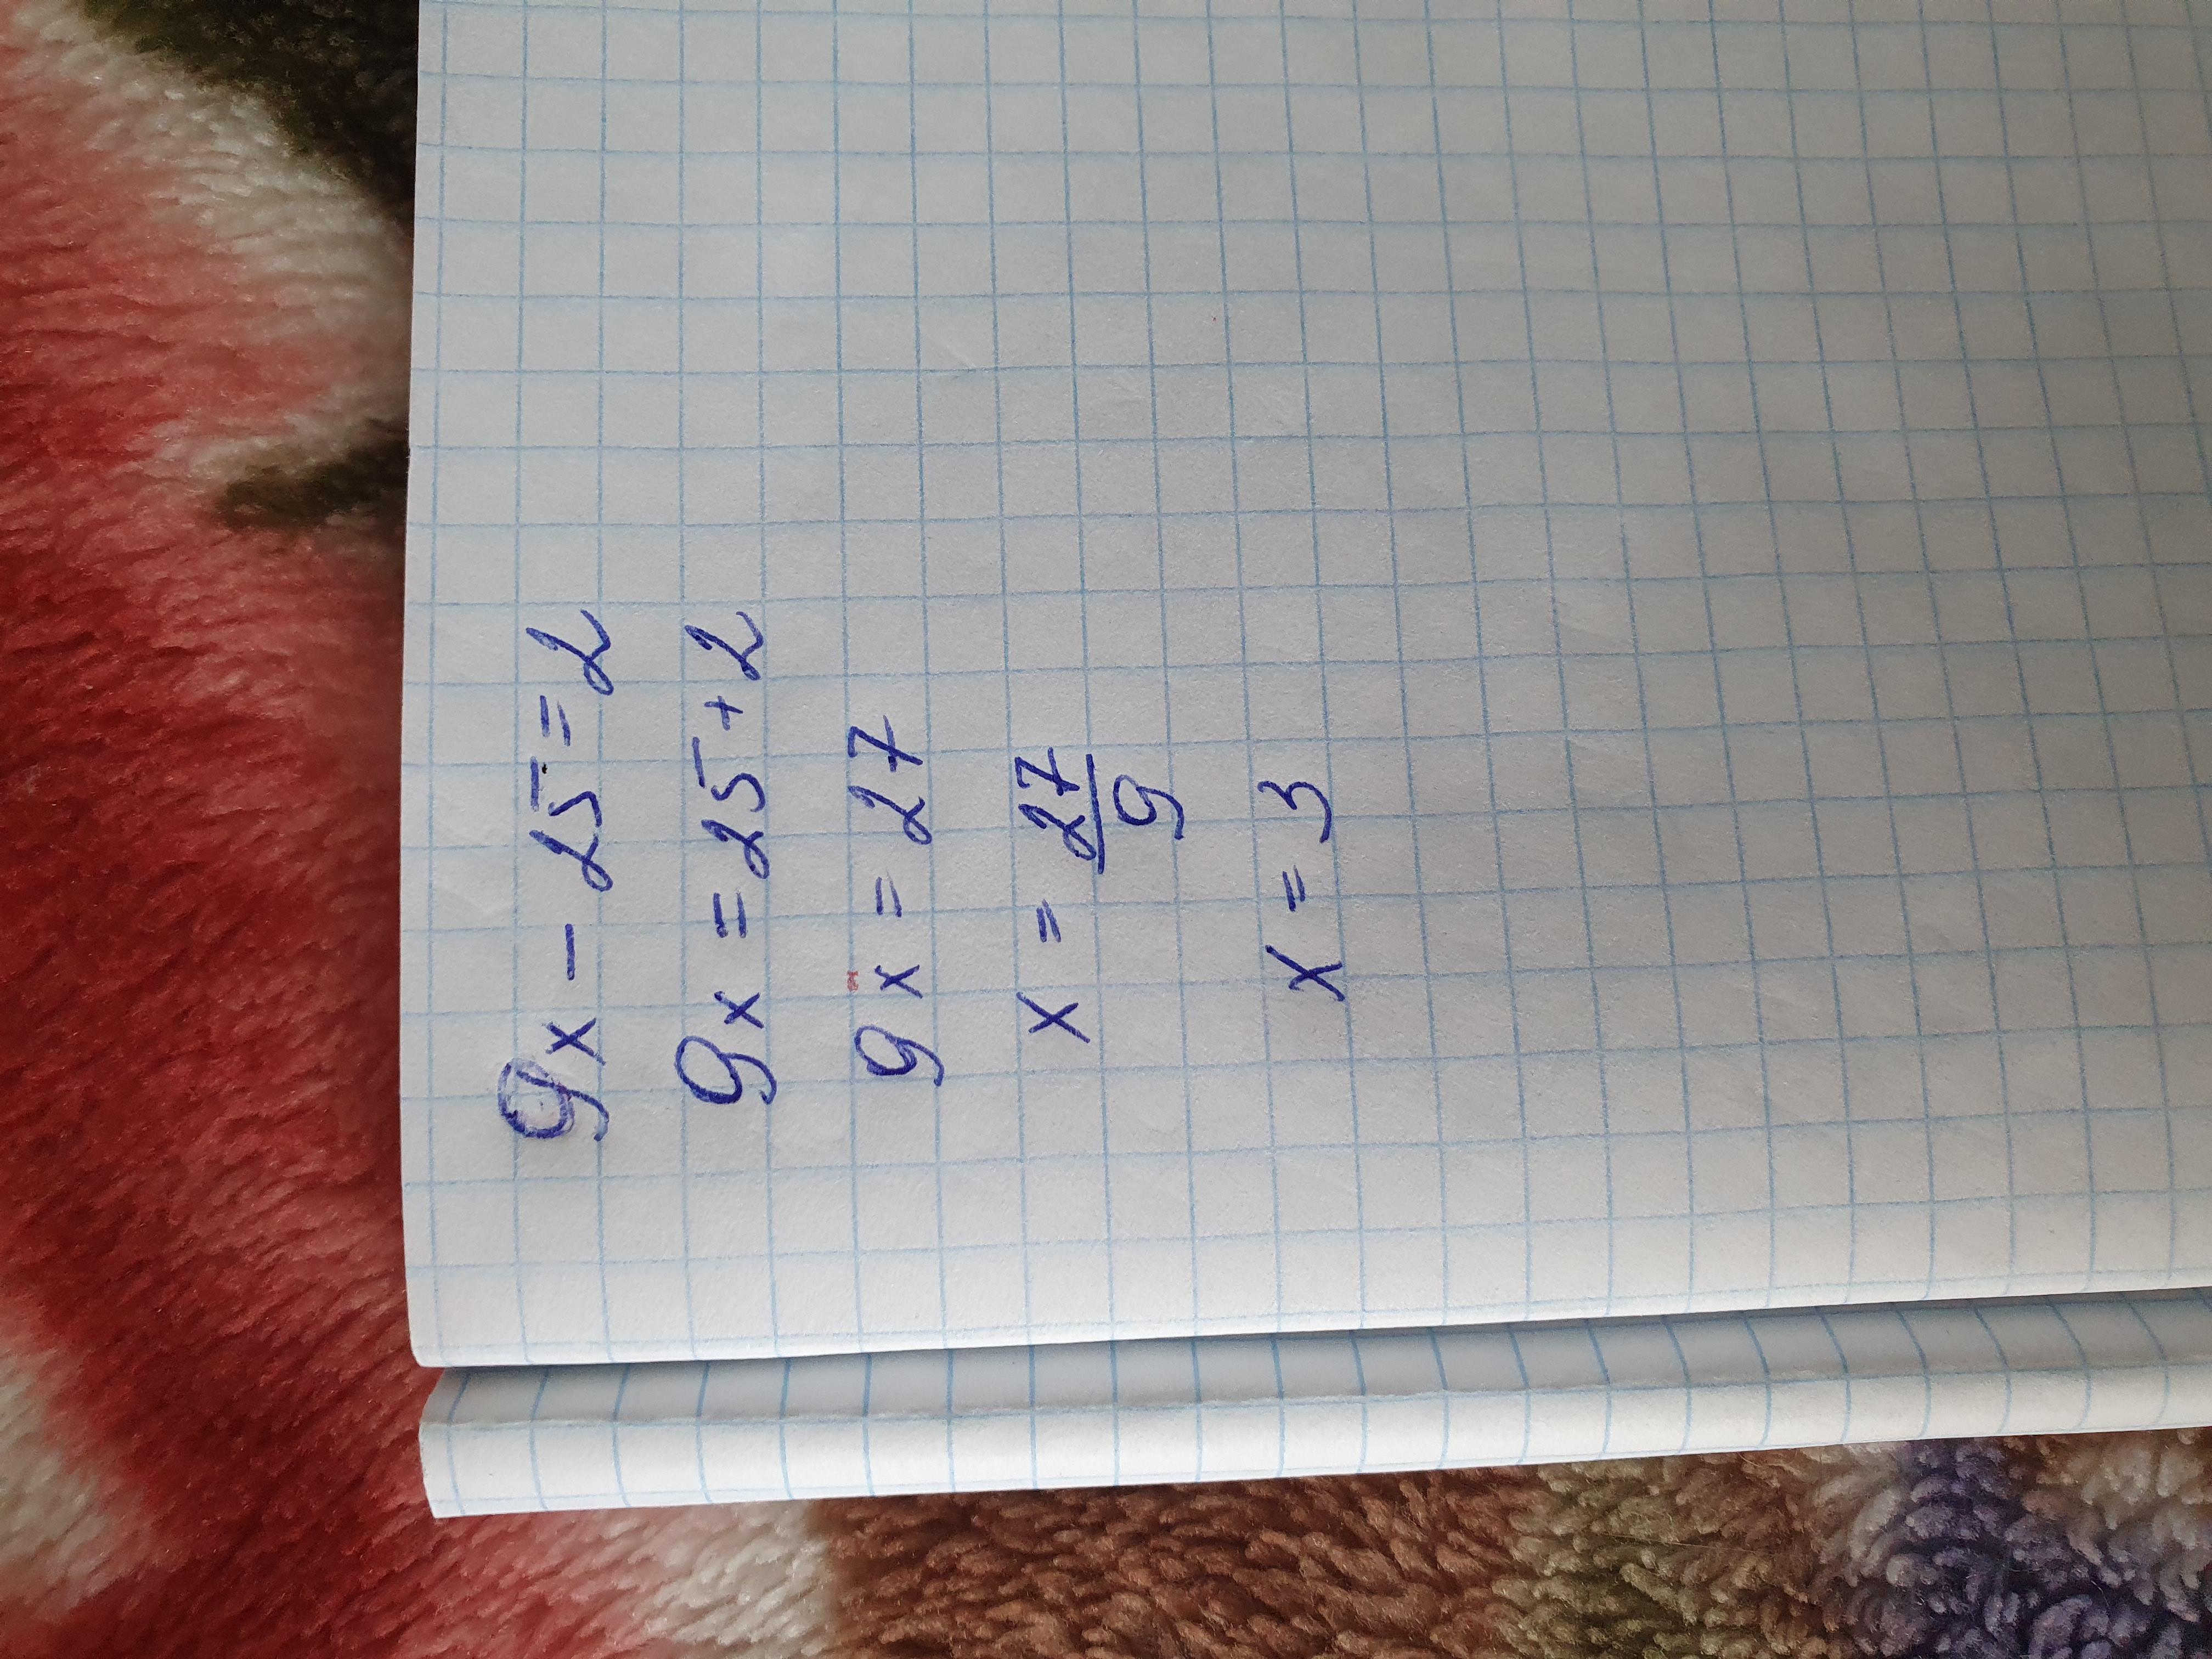 9x - 25 = 2
9x = 25 + 2
9x = 27
x = 27/9
x = 3